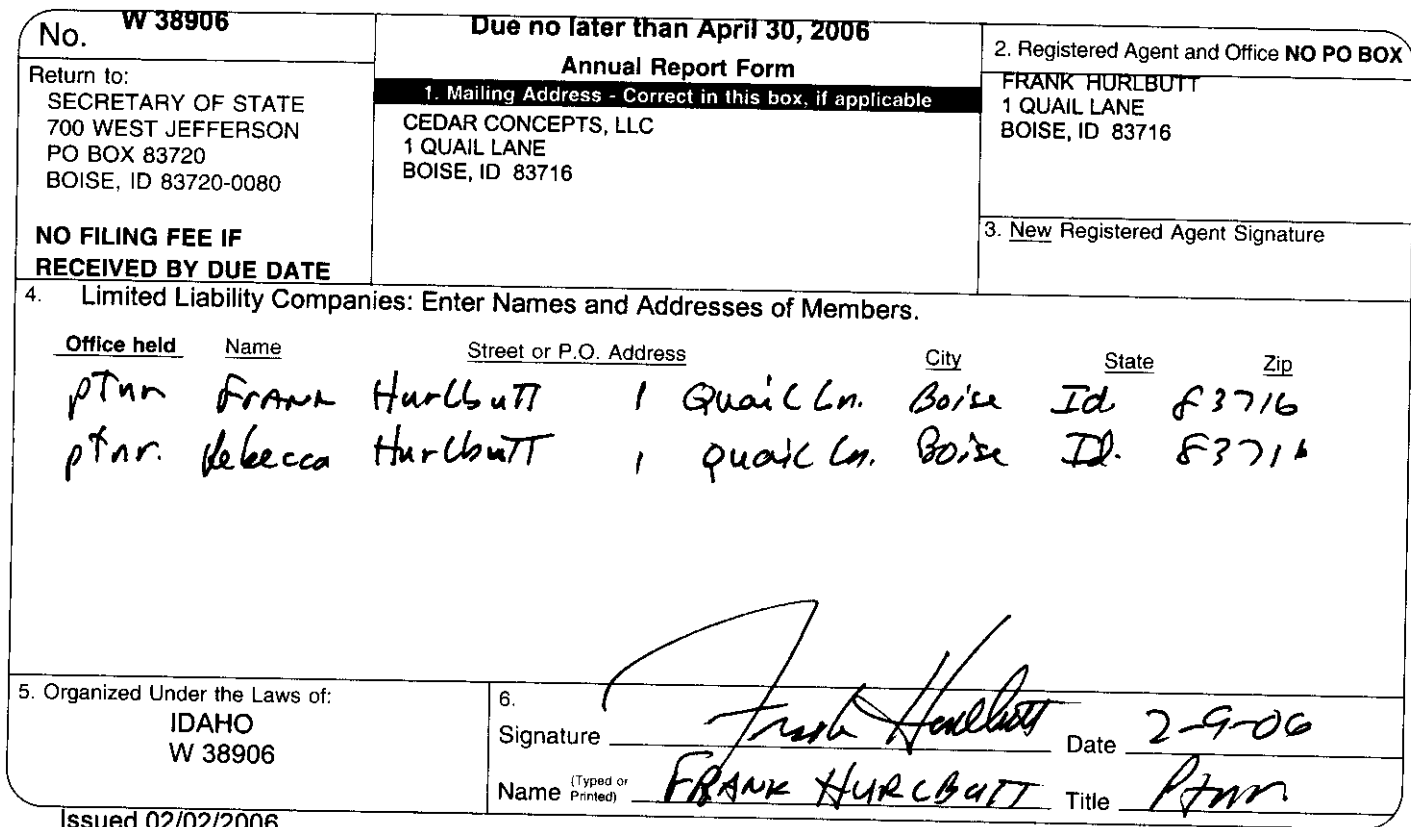 No. W 38906
Return to:
SECRETARY OF STATE
700 WEST JEFFERSON
PO BOX 83720
BOISE, ID 83720-0080
NO FILING FEE IF
RECEIVED BY DUE DATE
Due no later than April 30, 2006
Annual Report Form
1. Mailing Address - Correct in this box, if applicable
CEDAR CONCEPTS, LLC
1 QUAIL LANE
BOISE, ID 83716
2. Registered Agent and Office NO PO BOX
FRANK HURLBUTT
1 QUAIL LANE
BOISE, ID 83716
3. New Registered Agent Signature
4. Limited Liability Companies: Enter Names and Addresses of Members.
Office held Name Street or P.O. Address City State Zip
ptnr Frank Hurlbutt 1 Quail Ln. Boise Id 83716
ptnr. Rebecca Hurlbutt 1 Quail Ln. Boise Id. 83716
5. Organized Under the Laws of:
IDAHO
W 38906
6.
Signature Frank Hurlbutt Date 2-9-06
Name (Typed or Printed) FRANK HURLBUTT Title Ptnr
Issued 02/02/2006